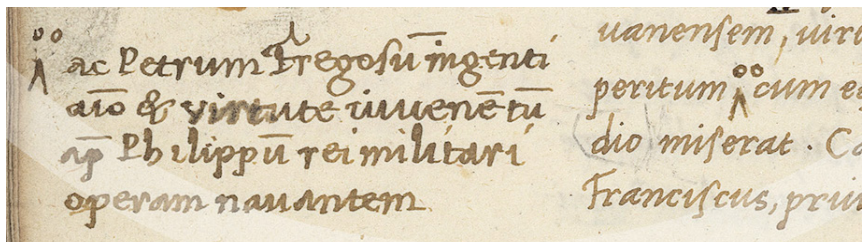 ac Petrum Fregosū ingenti
aīo & virtute iuuenē tū
ap̄ Philippū rei militari
operam nauantem
uanensem, uiri
peritum cum ea
dio miserat. Ca
Franciscus, priu